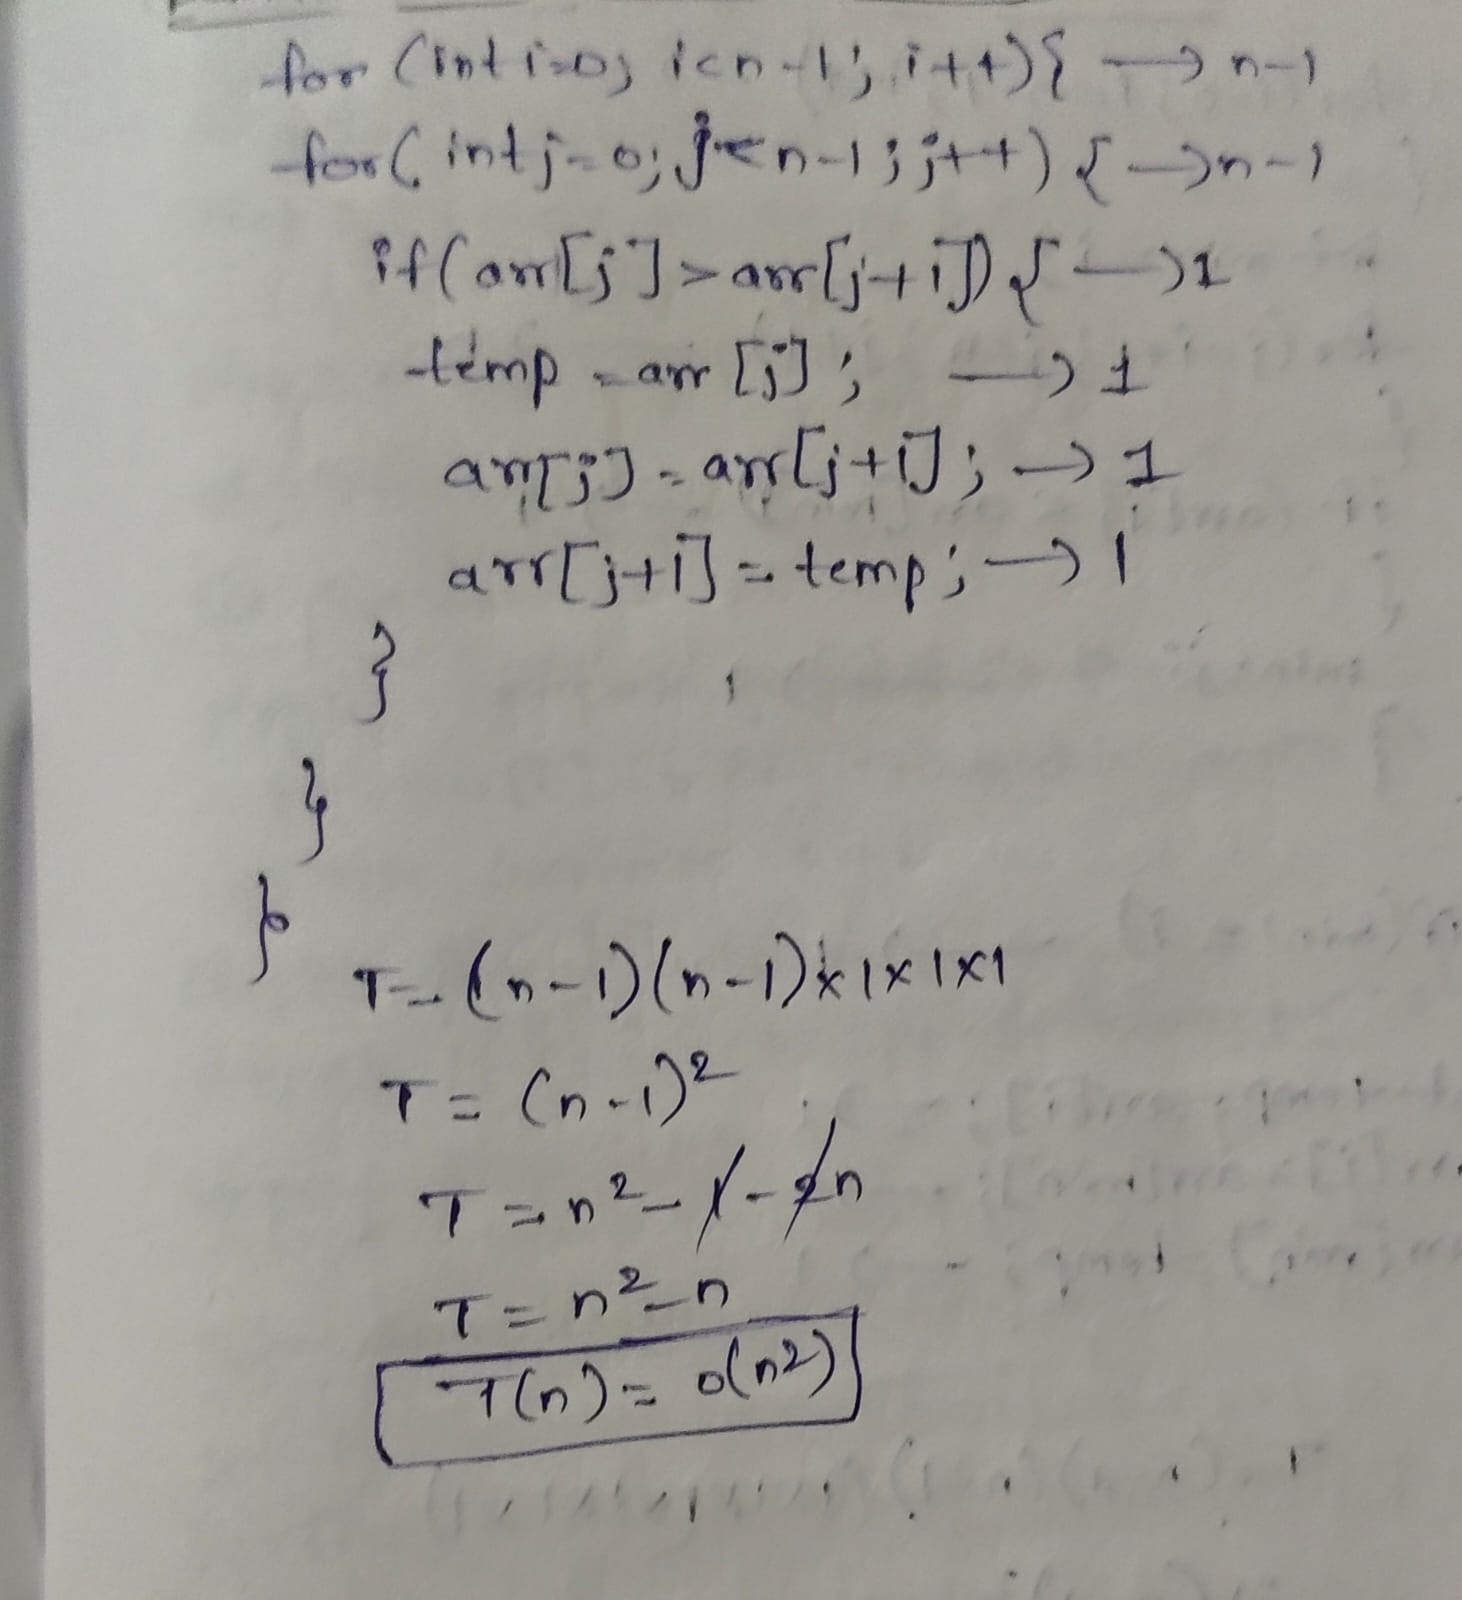 for (int i=0; i<n-1; i++){ → n-1
for( int j=0; j<n-1; j++) { → n-1
if(arr[j] > arr[j+i]) { → 1
temp = arr [j]; → 1
arr[j] = arr[j+i]; → 1
arr[j+i] = temp; → 1
}
}
}
T= (n-1)(n-1)×1×1×1
T = (n-1)²
T = n² - 1 - 2n
T = n² - n
T(n) = o(n²)